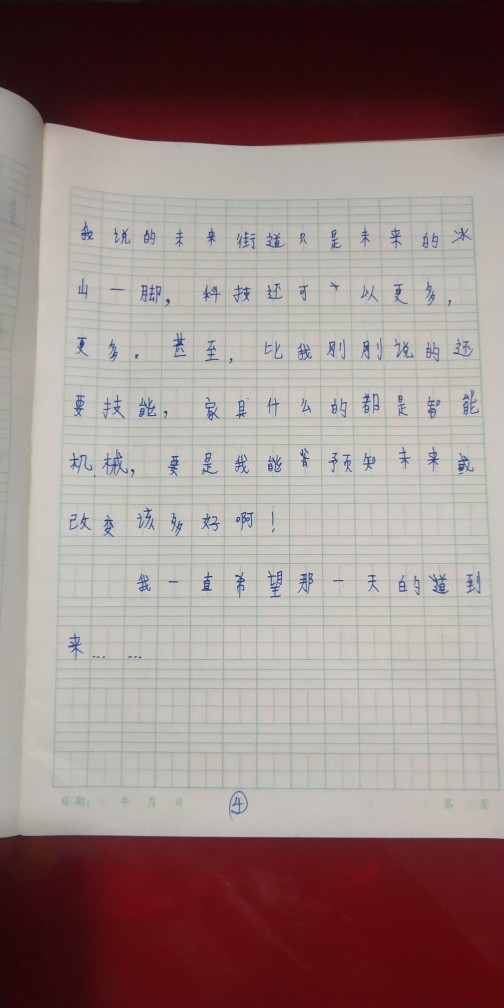 我说的未来街道只是未来的冰
山一脚，科技还可以更多，
更多。甚至，比我刚刚说的还
要技能，家具什么的都是智能
机械，要是我能预知未来或
改变该多好啊！
我一直希望那一天的道到
来……
日期： 年 月 日 ④ 第 页